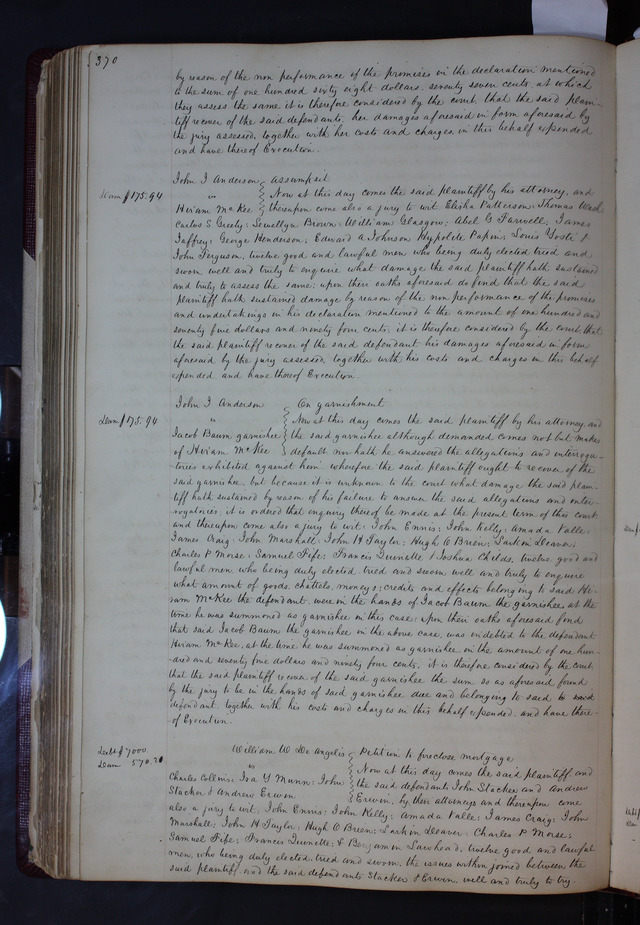 370
by reason of the non performance of the promises in the declaration mentioned
to the sum of one hundred sixty eight dollars, seventy seven cents, at which
they assess the same it is therefore considered by the court, that the said plain-
tiff recover of the said defendants, her damages aforesaid in form aforesaid by
the jury assessed, together with her costs and charges, in this behalf expended
and have thereof Execution.
John J Anderson Assumpsit
Dam $175.94 vs Now at this day comes the said plaintiff by his attorney, and
Hiram McKee thereupon come also a jury to wit: Elisha Patterson; Thomas Wash
Carlos S. Greely; Lewellyn Brown; William Glasgow; Abel C Farwell; James
Jaffrey; George Henderson; Edward A Johnson Hypolite Papin; Louis Yosti &
John Ferguson, twelve good and lawful men who being duly elected tried and
sworn well and truly to enquire what damage the said plaintiff hath sustained
and truly to assess the same; upon their oaths aforesaid do find that the said
plaintiff hath sustained damage by reason of the non performance of the promises
and undertakings in his declaration mentioned to the amount of one hundred and
seventy five dollars and ninety four cents, it is therefore considered by the court, that
the said plaintiff recover of the said defendant his damages aforesaid in form
aforesaid by the jury assessed, together with his costs and charges in this behalf
expended, and have thereof Execution.
John J Anderson On garnishment
Dam $175.94 vs Now at this day comes the said plaintiff by his attorney, and
Jacob Baum garnishee the said garnishee although demanded comes not but makes
of Hiram McKee default nor hath he answered the allegations and interroga-
tories exhibited against him wherefore the said plaintiff ought to recover of the
said garnishee, but because it is unknown to the court what damage the said plain-
tiff hath sustained by reason of his failure to answer the said allegations and inter-
rogatories; it is ordered that enquiry thereof be made at the present term of this court
and thereupon come also a jury to wit: John Ennis; John Kelly; Amada Valle;
James Craig; John Marshall; John H Taylor; Hugh O Brien; Larkin Deaver;
Charles P Morse; Samuel Fife; Francis Quenette & Joshua Childs, twelve good and
lawful men, who being duly elected, tried and sworn well and truly to enquire
what amount of goods, chattels, moneys, credits and effects belonging to said Hi-
ram McKee the defendant, were in the hands of Jacob Baum the garnishee, at the
time he was summoned as garnishee in this case; upon their oaths aforesaid find
that said Jacob Baum the garnishee in the above case, was indebted to the defendant
Hiram McKee, at the time he was summoned as garnishee in the amount of one hun-
dred and seventy five dollars and ninety four cents, it is therefore considered by the court
that the said plaintiff recover of the said garnishee the sum so as aforesaid found
by the jury to be in the hands of said garnishee due and belonging to said to said
defendant, together with his costs and charges in this behalf expended, and have there-
of Execution.
Debt $7000. William W De Angelis Petition to foreclose mortgage
Dam 570.20 Now at this day comes the said plaintiff and
Charles Collins; Ira Y Munn; John the said defendants John Stacker and Andrew
Stacker & Andrew Erwin Erwin, by their attorneys and thereupon come
also a jury to wit: John Ennis; John Kelly; Amada Valle; James Craig; John
Marshall; John H Taylor; Hugh O Brien; Larkin Deaver; Charles P Morse;
Samuel Fife; Francis Quenette; & Benjamin Lawhead, twelve good and lawful
men, who being duly elected, tried and sworn, the issues within joined between the
said plaintiff, and the said defendants Stacker & Erwin, well and truly to try.